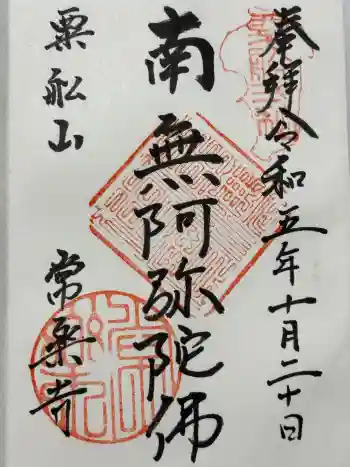 奉拝 令和五年十月二十日
南無阿弥陀佛
粟船山
常楽寺